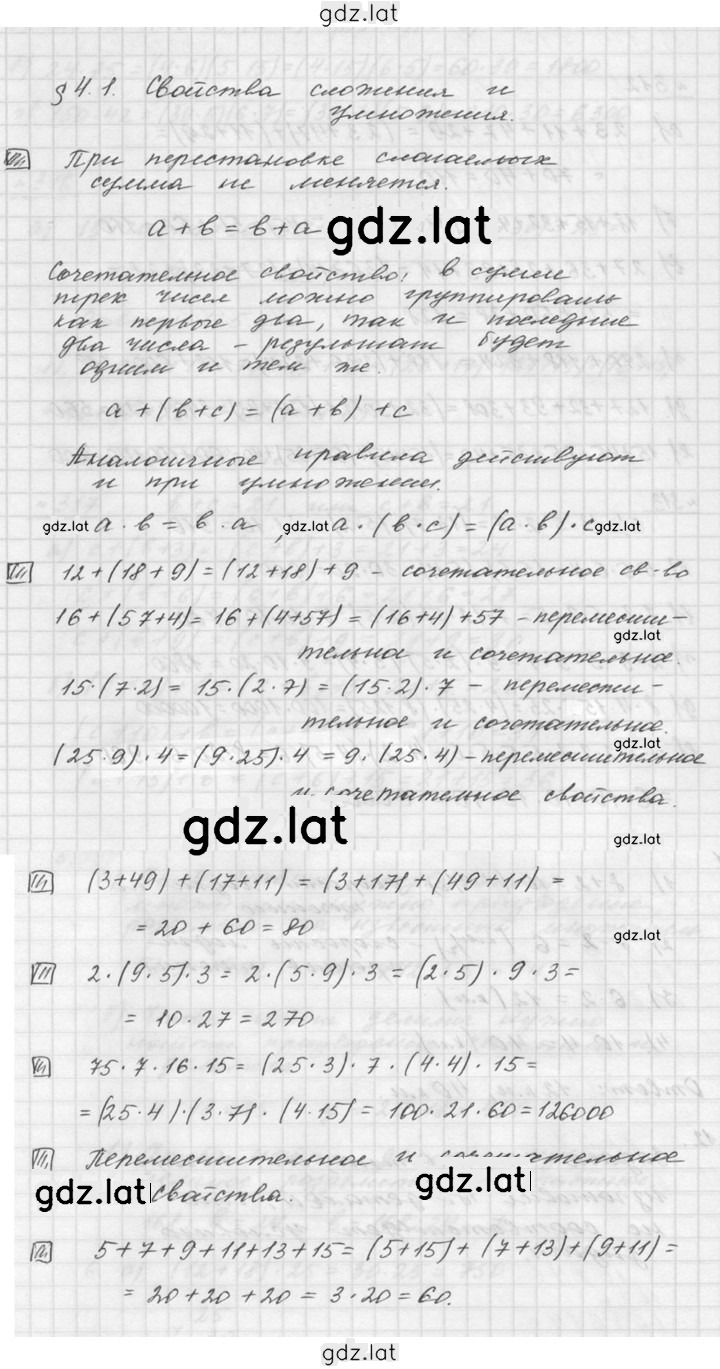 gdz.lat
§ 4.1. Свойства сложения и
умножения.
При перестановке слагаемых
сумма не меняется.
a + b = b + a
gdz.lat
Сочетательное свойство: в сумме
трех чисел можно группировать
как первые два, так и последние
два числа – результат будет
одним и тем же.
a + (b + c) = (a + b) + c
Аналогичные правила действуют
и при умножении.
gdz.lat a · b = b · a , gdz.lat a · (b · c) = (a · b) · c gdz.lat
12 + (18 + 9) = (12 + 18) + 9 – сочетательное св-во
16 + (57 + 4) = 16 + (4 + 57) = (16 + 4) + 57 – перемести-
gdz.lat
тельное и сочетательное.
15 · (7 · 2) = 15 · (2 · 7) = (15 · 2) · 7 – перемести-
тельное и сочетательное.
gdz.lat
(25 · 9) · 4 = (9 · 25) · 4 = 9 · (25 · 4) – переместительное
и сочетательное свойства.
gdz.lat
gdz.lat
(3 + 49) + (17 + 11) = (3 + 17) + (49 + 11) =
= 20 + 60 = 80
gdz.lat
2 · (9 · 5) · 3 = 2 · (5 · 9) · 3 = (2 · 5) · 9 · 3 =
= 10 · 27 = 270
75 · 7 · 16 · 15 = (25 · 3) · 7 · (4 · 4) · 15 =
= (25 · 4) · (3 · 7) · (4 · 15) = 100 · 21 · 60 = 126000
Переместительное и сочетательное
gdz.lat свойства. gdz.lat
5 + 7 + 9 + 11 + 13 + 15 = (5 + 15) + (7 + 13) + (9 + 11) =
= 20 + 20 + 20 = 3 · 20 = 60.
gdz.lat